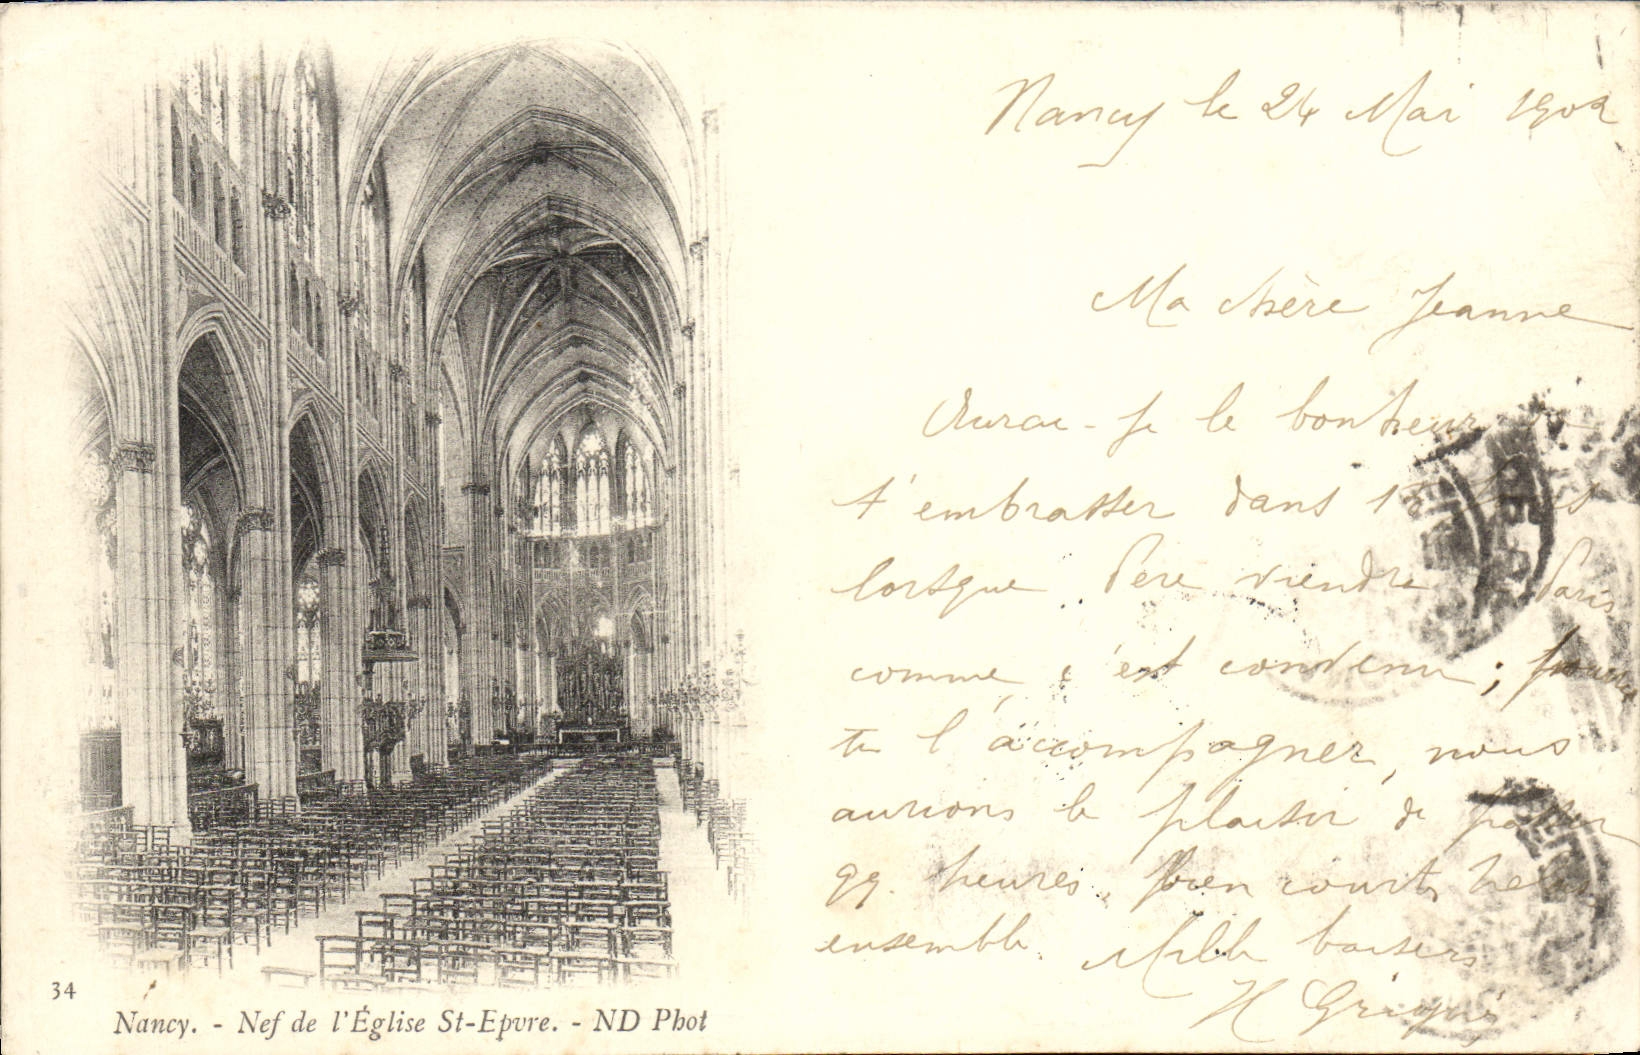 Nancy le 24 Mai 1902
Ma chère Jeanne
Aurai-je le bonheur
t'embrasser dans
lorsque Père viendra Paris
comme c'est convenu ;
tu l'accompagner, nous
aurions le plaisir de
qq. heures, bien courtes hélas
ensemble. Mille baisers
H
34
Nancy. - Nef de l'Église St-Epvre. - ND Phot